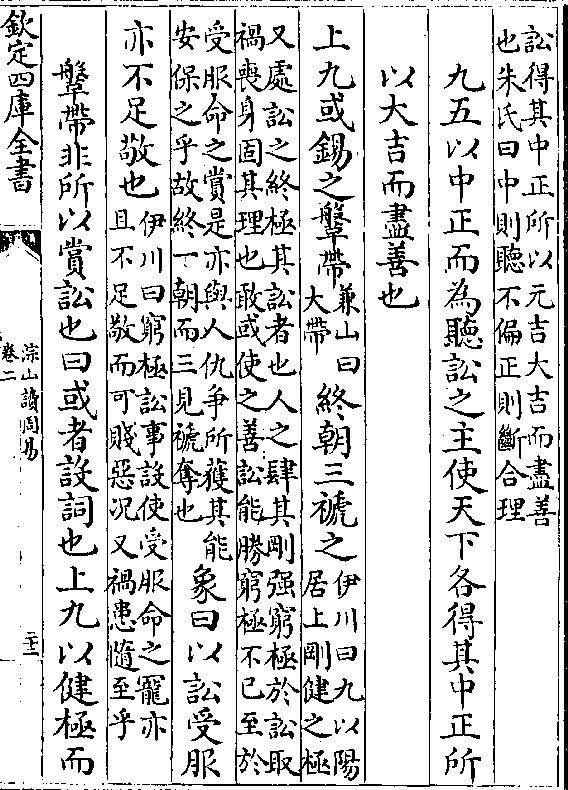 訟得其中正所以元吉大吉而盡善
也朱氏曰中則聽不偏正則斷合理
九五以中正而為聽訟之主使天下各得其中正所
以大吉而盡善也
上九或錫之鞶帶兼山曰大帶終朝三褫之伊川曰九以陽居上剛健之極
又處訟之終極其訟者也人之肆其剛强窮極於訟取
禍喪身固其理也敢或使之善訟能勝窮極不已至於
受服命之賞是亦與人仇爭所獲其能安保之乎故終一朝而三見褫奪也象曰以訟受服
亦不足敬也伊川曰窮極訟事設使受服命之寵亦且不足敬而可賤惡况又禍患隨至乎
鞶帶非所以賞訟也曰或者設詞也上九以健極而
欽定四庫全書
淙山讀周易
卷二